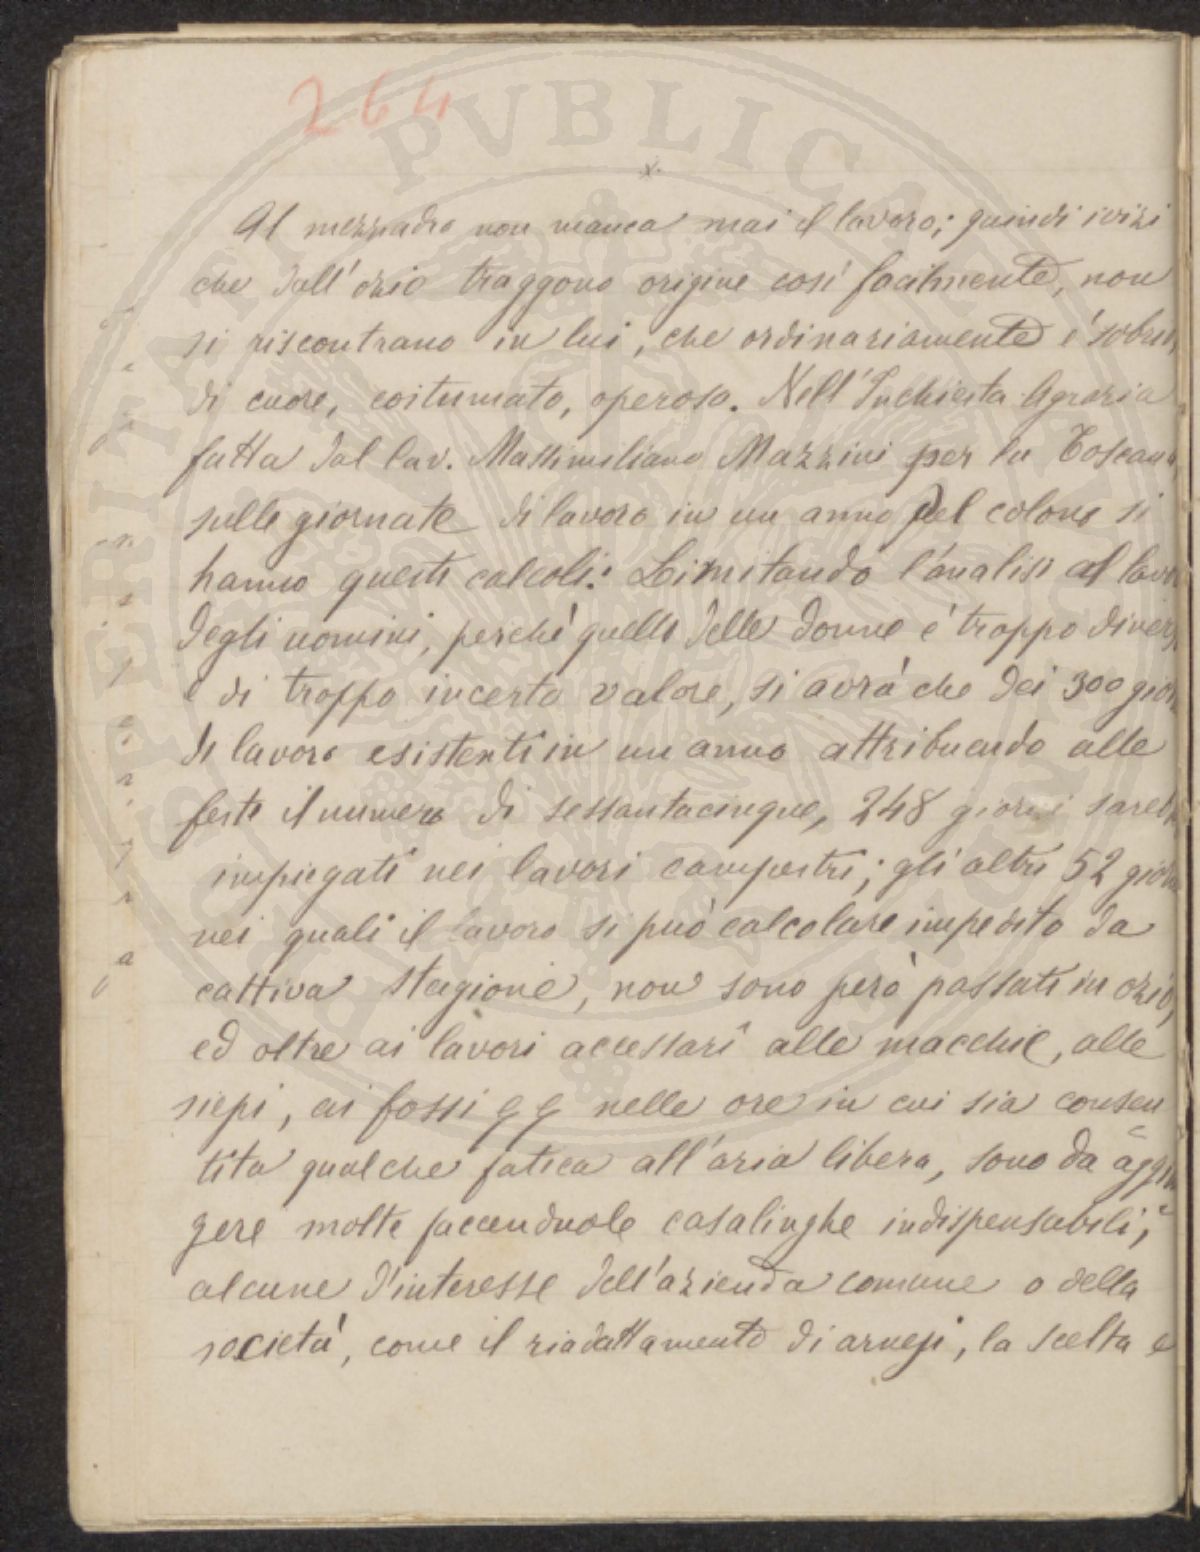 264
x.
Al mezzadro non manca mai il lavoro; quindi i vizi
che dall'ozio traggono origine così facilmente, non
si riscontrano in lui, che ordinariamente è sobrio,
di cuore, costumato, operoso. Nell'Inchiesta Agraria
fatta dal Cav. Massimiliano Mazzini per la Toscana,
sulle giornate di lavoro in un anno del colono si
hanno questi calcoli: Limitando l'analisi al lavo
degli uomini, perchè quello delle donne è troppo diverso
e di troppo incerto valore, si avrà che dei 300 giorn
di lavoro esistenti in un anno attribuendo alle
feste il numero di sessantacinque, 248 giorni sareb
impiegati nei lavori campestri; gli altri 52 giorn
nei quali il lavoro si può calcolare impedito da
cattiva stagione, non sono però passati in ozio,
ed oltre ai lavori accessarî alle macchie, alle
siepi, ai fossi nelle ore in cui sia consen
tita qualche fatica all'aria libera, sono da aggiu
gere molte faccenduole casalinghe indispensabili;
alcune d'interesse dell'azienda comune o della
società, come il riadattamento di arnesi, la scelta e
PERITATI PVBLICAE